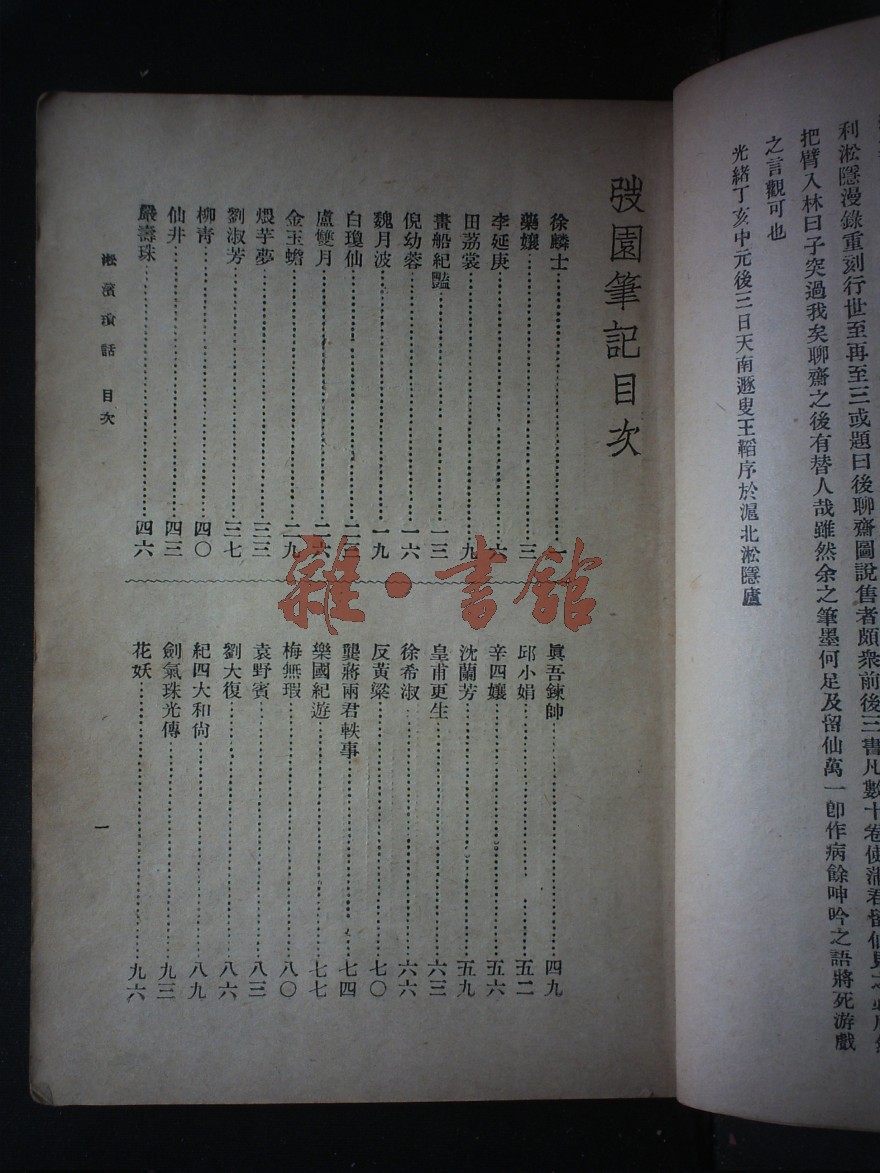 利淞隱漫錄重刻行世至再至三或題曰後聊齋圖說售者頗衆前後三書凡數十卷使蒲君留仙見之
把臂入林曰子突過我矣聊齋之後有替人哉雖然余之筆墨何足及留仙萬一卽作病餘呻吟之語將死游戲
之言觀可也
光緒丁亥中元後三日天南遯叟王韜序於滬北淞隱廬
弢園筆記目次
徐麟士 一
藥孃 三
李延庚 六
田荔裳 九
畫船紀豔 一三
倪幼蓉 一六
魏月波 一九
白瓊仙 二三
盧雙月 二六
金玉蟾 二九
煨芋夢 三三
劉淑芳 三七
柳靑 四〇
仙井 四三
嚴壽珠 四六
眞吾鍊師 四九
邱小娟 五二
辛四孃 五六
沈蘭芳 五九
皇甫更生 六三
徐希淑 六六
反黃粱 七〇
龔蔣兩君軼事 七四
樂國紀遊 七七
梅無瑕 八〇
袁野賓 八三
劉大復 八六
紀四大和尙 八九
劍氣珠光傳 九三
花妖 九六
淞濱瑣話 目次
一
雜·書館